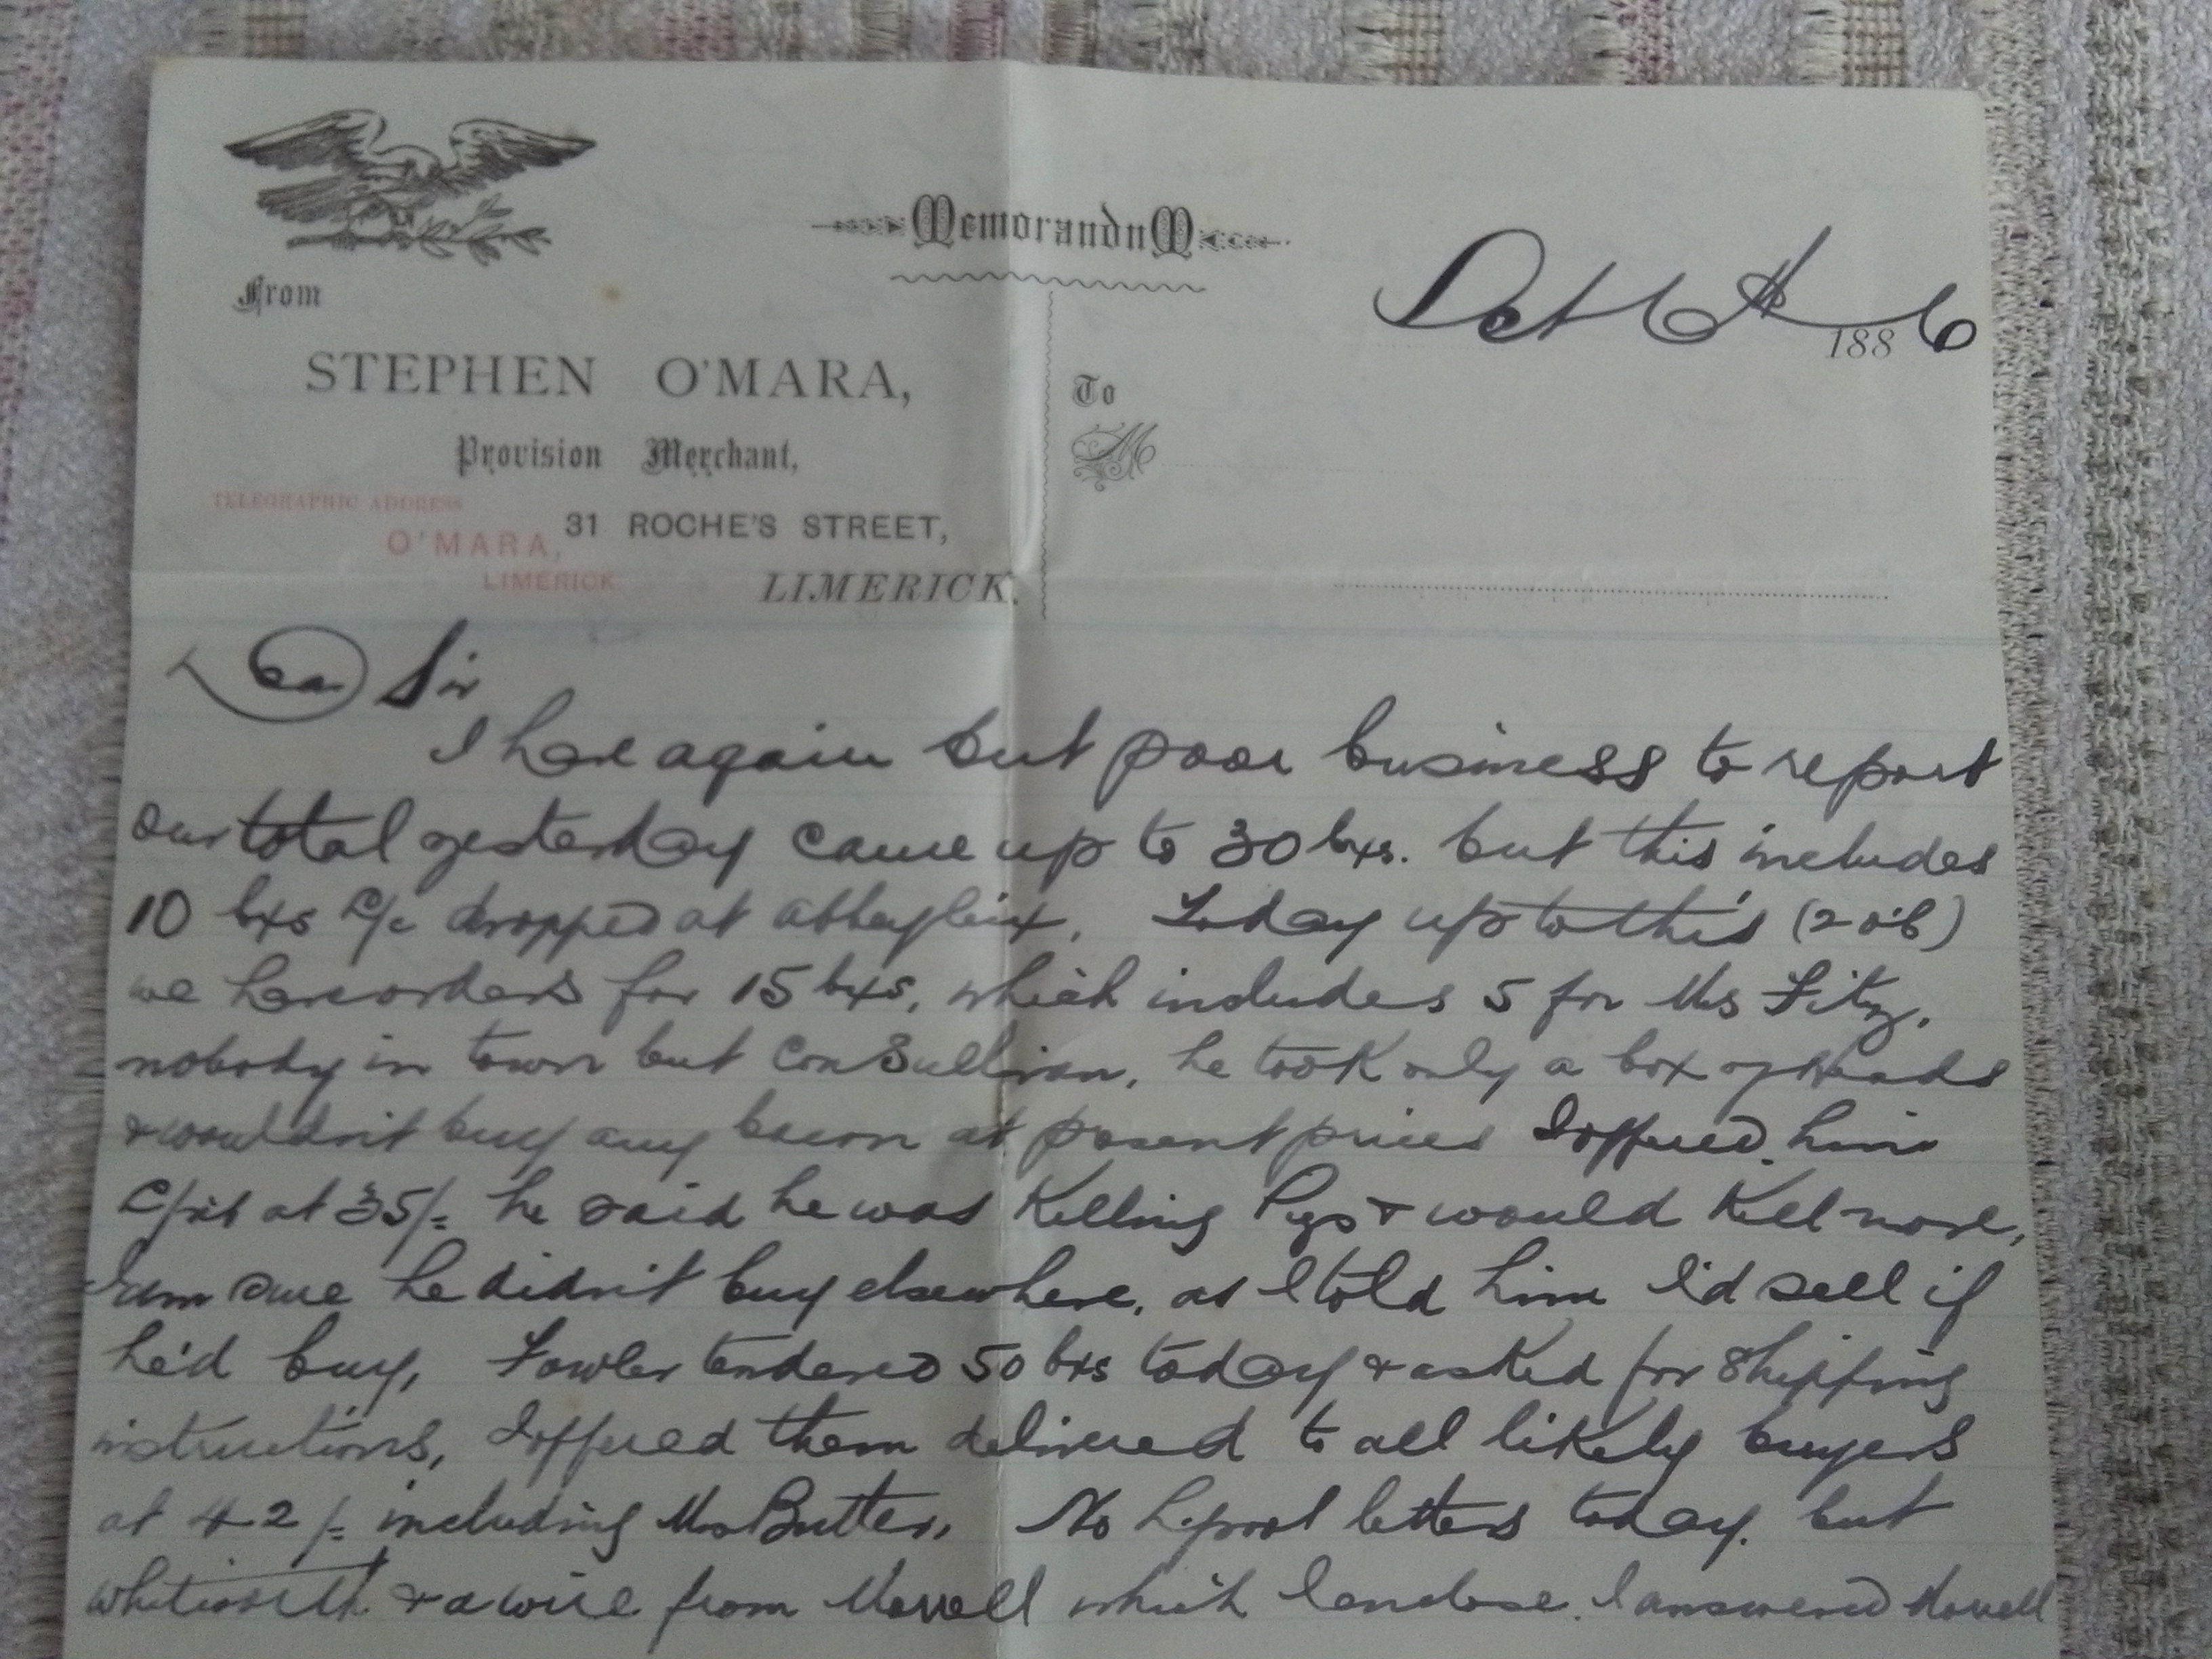 Memorandum
From
Oct 6th 1886
STEPHEN O'MARA,
To
Provision Merchant,
M
TELEGRAPHIC ADDRESS
O'MARA,
LIMERICK.
31 ROCHE'S STREET,
LIMERICK.
Dear Sir
I have again but poor business to report
our total yesterday came up to 30 bxs. but this includes
10 bxs dropped at abbeyleix. Today up to this
we have orders for 15 bxs, which includes 5 for Mrs Fitz,
nobody in town but Con Sullivan, he took only a box of Heads
& wouldn't buy any bacon at present prices I offered him
at 35/= he said he was Killing Pigs & would Kill more,
I am sure he didn't buy elsewhere, as I told him I'd sell if
he'd buy, Fowler tendered 50 bxs today & asked for Shipping
instructions, I offered them delivered to all likely buyers
at 42/= including Mrs Butter, No L.pool letters today. but
Whitworth & a wire from Morrell which I enclose. I answered Morrell